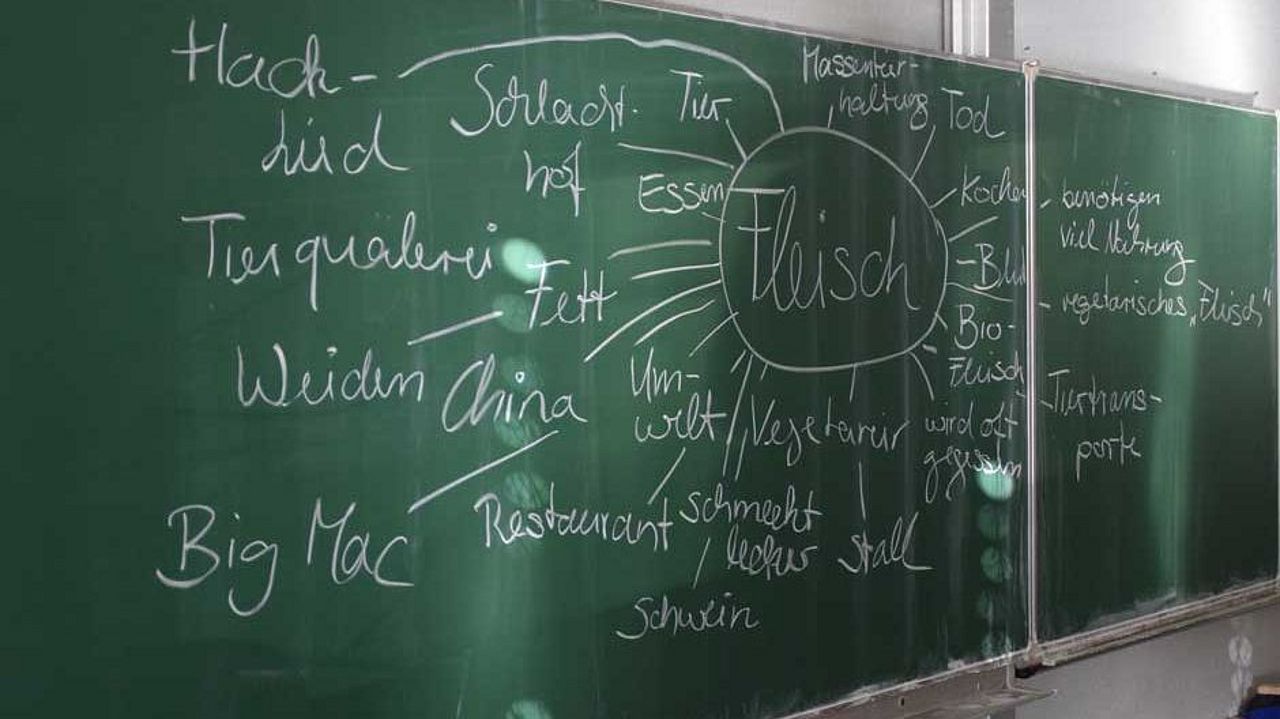 Hack-
Schlacht-
hof
Tier
Massentier-
haltung
Tod
Essen
Fleisch
Kochen
Tierquälerei
Fett
- Blut
Bio-
Fleisch
Weiden
China
Um-
welt
Vegetarier
wird oft
gegessen
Big Mac
Restaurant
schmeckt
lecker
Stall
Schwein
- benötigen
viel Nahrung
- vegetarisches „Fleisch“
- Tiertrans-
porte